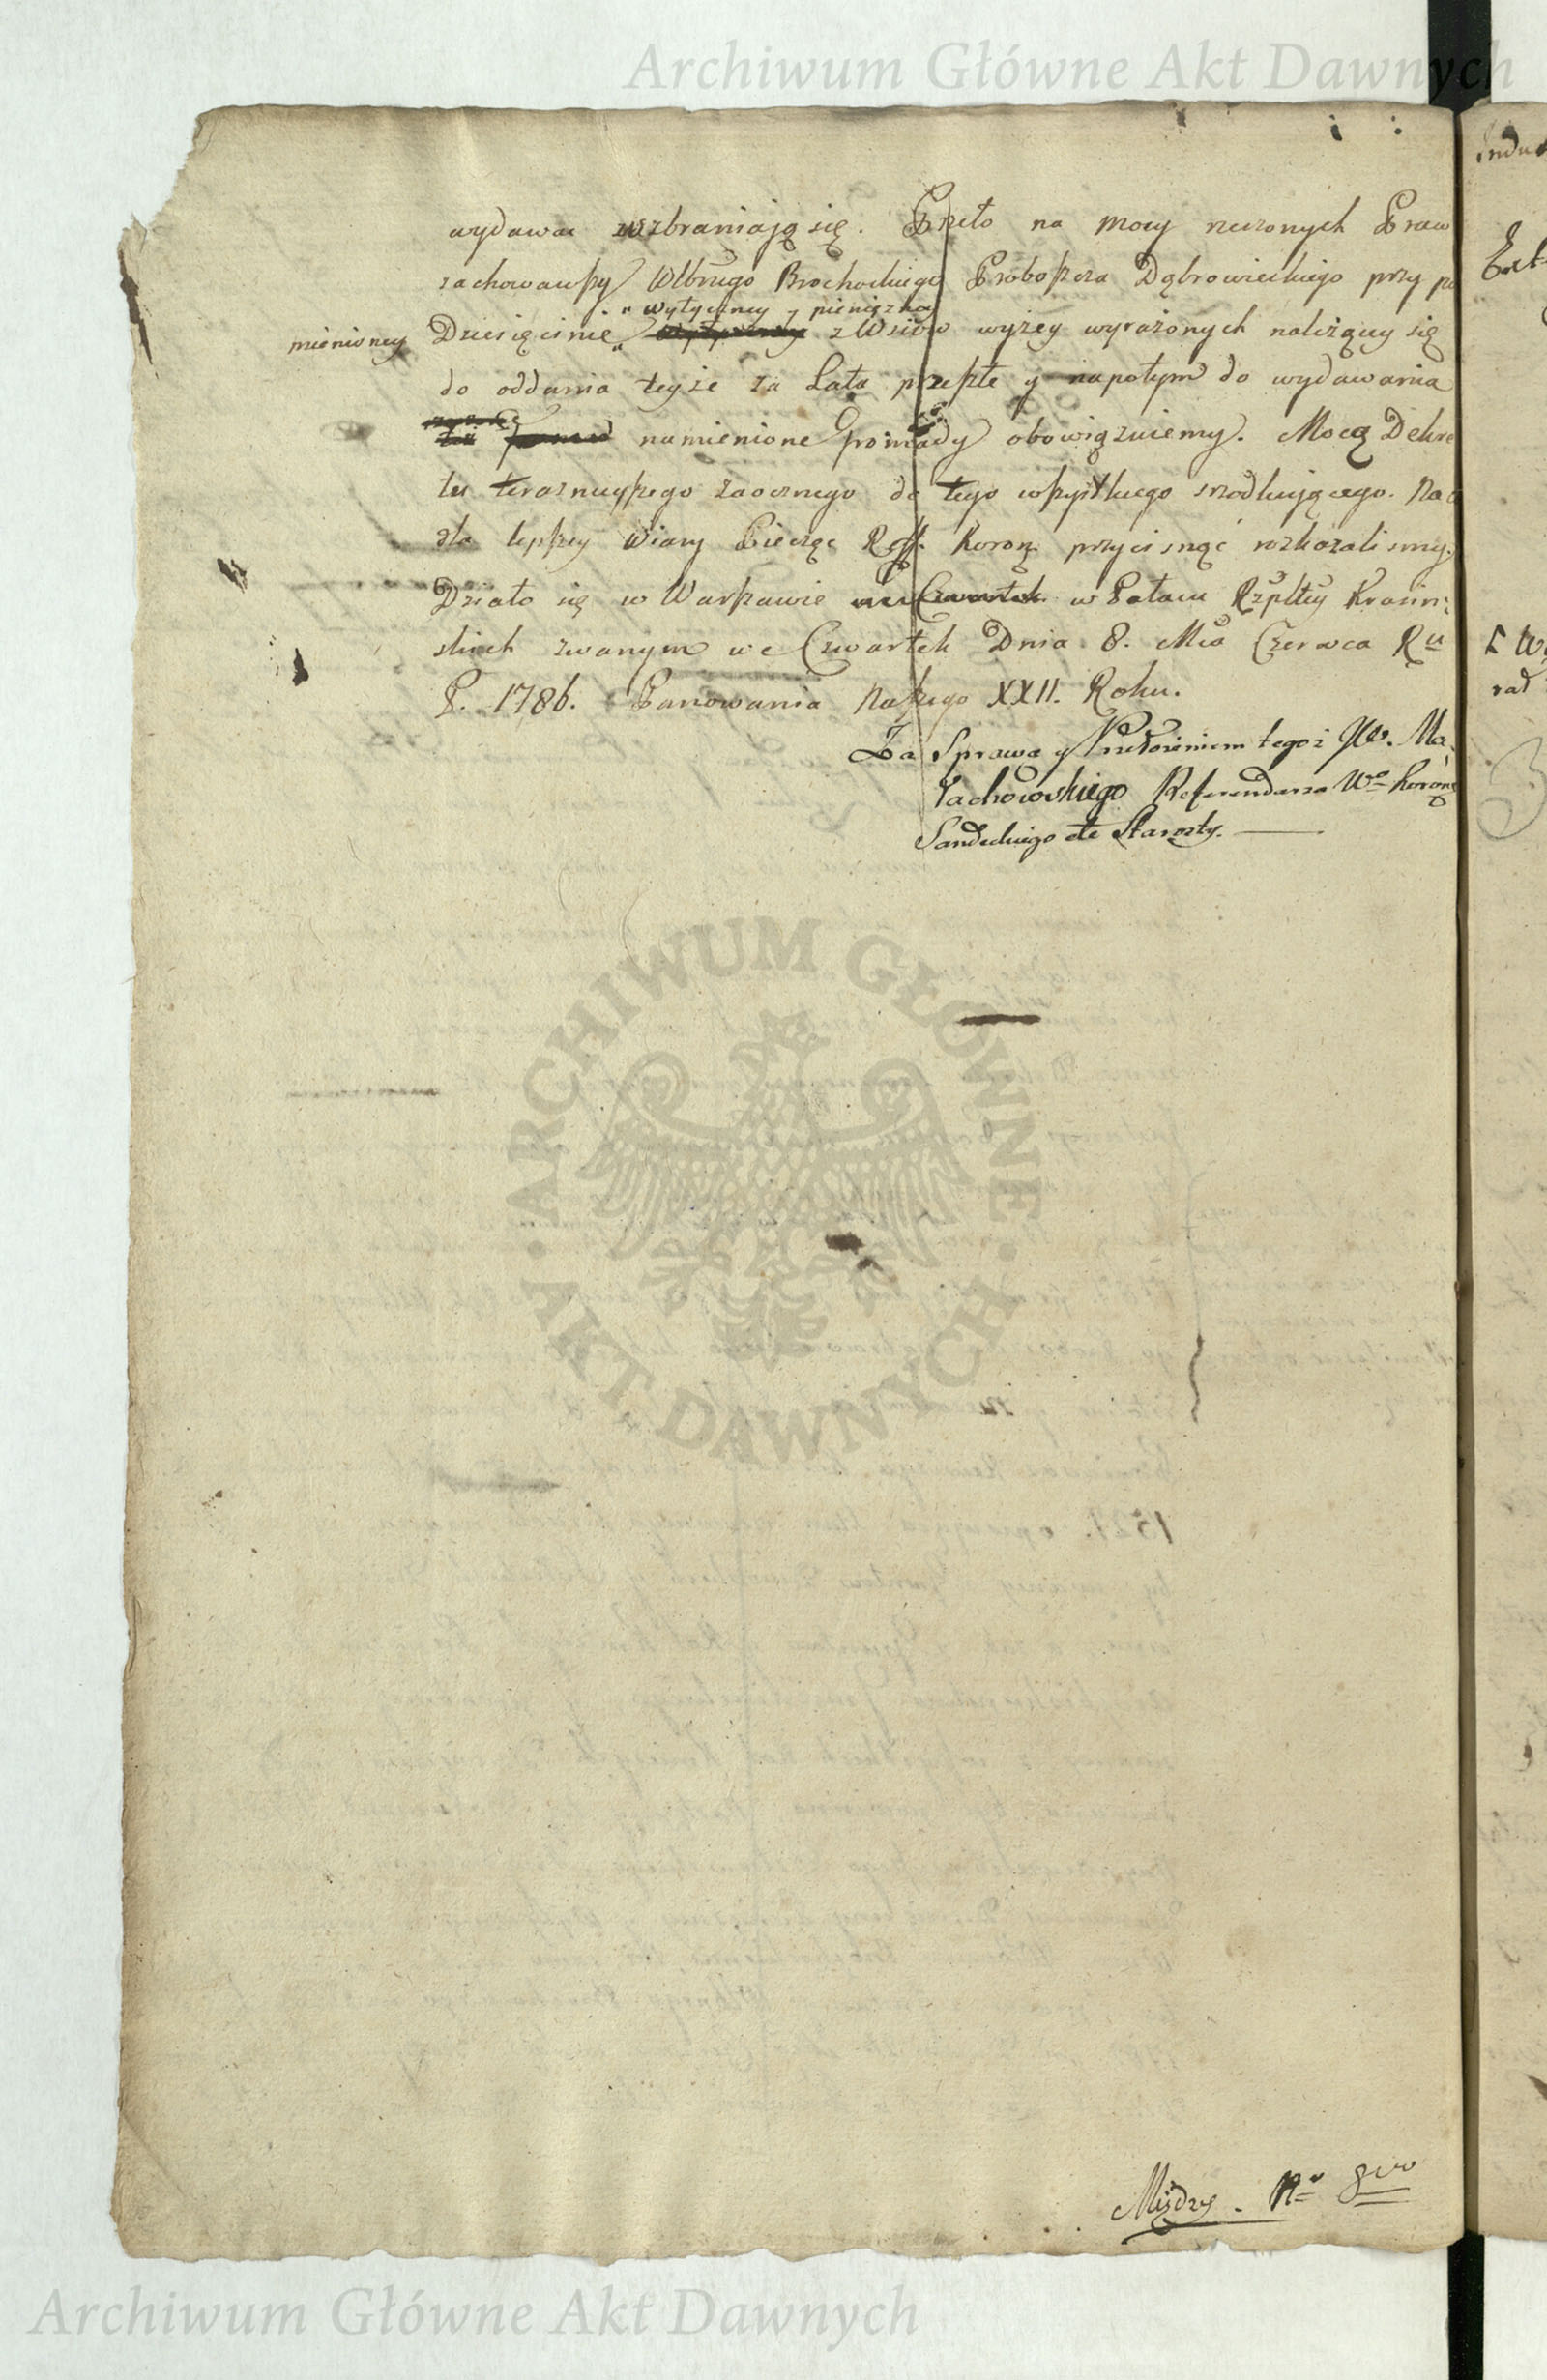 Archiwum Główne Akt Dawnych
wydawać wzbraniaią się. Przeto na mocy rzeczonych Praw
zachowawszy Wlbnego Brochockiego Proboszcza Dąbrowieckiego przy po
"wytyczney y pieniężney
mienioney Dziesięcinie z Wsiów wyżey wyrażonych należącey się
do oddania teyże za Lata przeszłe y napotym do wydawania
namienione Gromady obowiązuiemy. Mocą Dekre
tu teraznieyszego zaocznego do tego wszystkiego srzodkuiącego. Na co
dla lepszey Wiary Pieczęć Reff. Koron. przycisnąć rozkazalismy.
Działo się w Warszawie we Czwartek w Pałacu Rzpltey Krasin:
skich zwanym we Czwartek Dnia 8. Mca Czerwca Ru
P. 1786. Panowania Naszego XXII. Roku.
Za Sprawą y Przełożeniem tegoż JW. Ma:
łachowskiego Referendarza Wo Koronn
Sandeckiego etc Starosty.
ARCHIWUM GŁÓWNE · AKT DAWNYCH ·
Między. No 8vo
Archiwum Główne Akt Dawnych